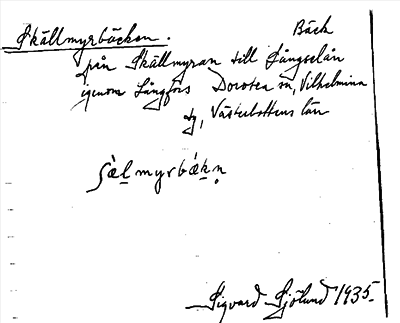 Skällmyrbäcken. Bäck
från Skällmyran till Långselån
igenom Långfors Dorotea sn, Vilhelmina
tg, Västerbottens län
ʃæ̀l myrbǽkn̥
Sigvard Sjölund 1935.